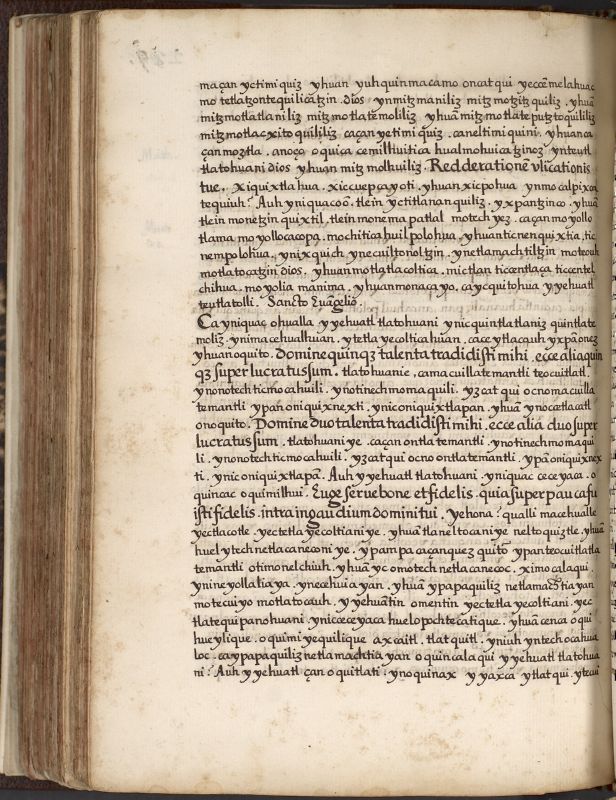 maçan yetimiquiz yhuan yuhquinmacamo oncatqui yeccēmelahuac
motetlatzontequilicātzin . dios . ynmitzmaniliz mitzmotzitzquiliz . yhuā
mitzmotlatlaniliz mitzmotlatemoliliz yhuā mitzmotlateputztoquililiz
mitzmotlacxitoquililiz caçan yetimiquiz . caneltimiquini . yhuan ca
çanmoztla . anoço oquica cemilhuitica hualmohuicatzinoz ynteutl
tlatohuani dios yhuan mitzmolhuiliz . Redderationē vlicationis
tue . xiquixtlahua . xiccuepcayoti . yhuan xicpohua ynmocalpixca
tequiuh? Auh yniquacoō . tlein yctitlananquiliz . yxpantzinco . yhuā
tlein monetzinquixtil , tlein monemapatlal motech yez . caçan moyollo
tlama moyollocacopa . mochiticahuilpolohua . yhuan ticnenquixtia , tic
nempolohua . ynixquich ynecuiltonoltzin . ynetlamachtiltzin moteouh
motlatocatzin dios . yhuan motlatlacoltica . mictlan ticcentlaça ticcentel
chihua . moyolia manima . yhuan monacayo . ca ycquitohua yyehuatl
teutlatolli . Sancto Euāgelio .
Ca yniquac ohualla yyehuatl tlatohuani ynicquintlatlaniz quintlate
moliz . ynimacehualhuan . ytetlayecolticahuan . cace ytlacauh yxpā onez
yhuan oquito . Domine quinqz talenta tradidisti mihi . ecce alia quin
qz super lucratus sum . tlatohuanie . camacuillatemantli teocuitlatl .
ynonotechticmocahuili . ynotinechmomaquili . yzcatqui ocnomacuilla
temantli ypan oniquixnexti . yniconiquixtlapan . yhuā ynocetlacatl
onoquito . Domine duo talenta tradidisti mihi . ecce alia duo super
lucratus sum . tlatohuaniye . caçan ontlatemantli . ynotinechmomaqui
li . ynonotechticmocahuili . yzcatqui ocno ontlatemantli . ypā oniquixnex
ti . ynic oniquixtlapā . Auh yyehuatl tlatohuani . yniquac ceceyaca . o
quincac oquimilhui . Euge serue bone et fidelis . quia super pauca fu
isti fidelis . intra in gaudium domini tui . yehona? qualli macehualle
yectlacotle . yectetlayecoltianiye . yhuā tlaneltocaniye neltoquiztle . yhuā
huel ytech netlacaneconiye . ypampa caçanquezquitō ypanteocuitlatla
temantli otimonelchiuh . yhuā yc omotech netlacanecoc . ximocalaqui .
ynineyollaliaya . ynecehuiayan . yhuā ypapaquiliz netlamachtiayan
motecuiyo motlatocauh . yyehuātin omentin yectetlayecoltiani . yec
tlatequipanohuani . yniceceyaca huel opochtecatique . yhuā cenca oqui
hueylique . oquimiyequilique axcaitl . tlatquitl . yniuh yntech ocahua
loc . ca ypapaquiliz netlamachtiayan oquincalaqui yyehuatl tlatohua
ni? Auh yyehuatl çan oquitlati ; ynoquinax yyaxca ytlatqui . ytecui